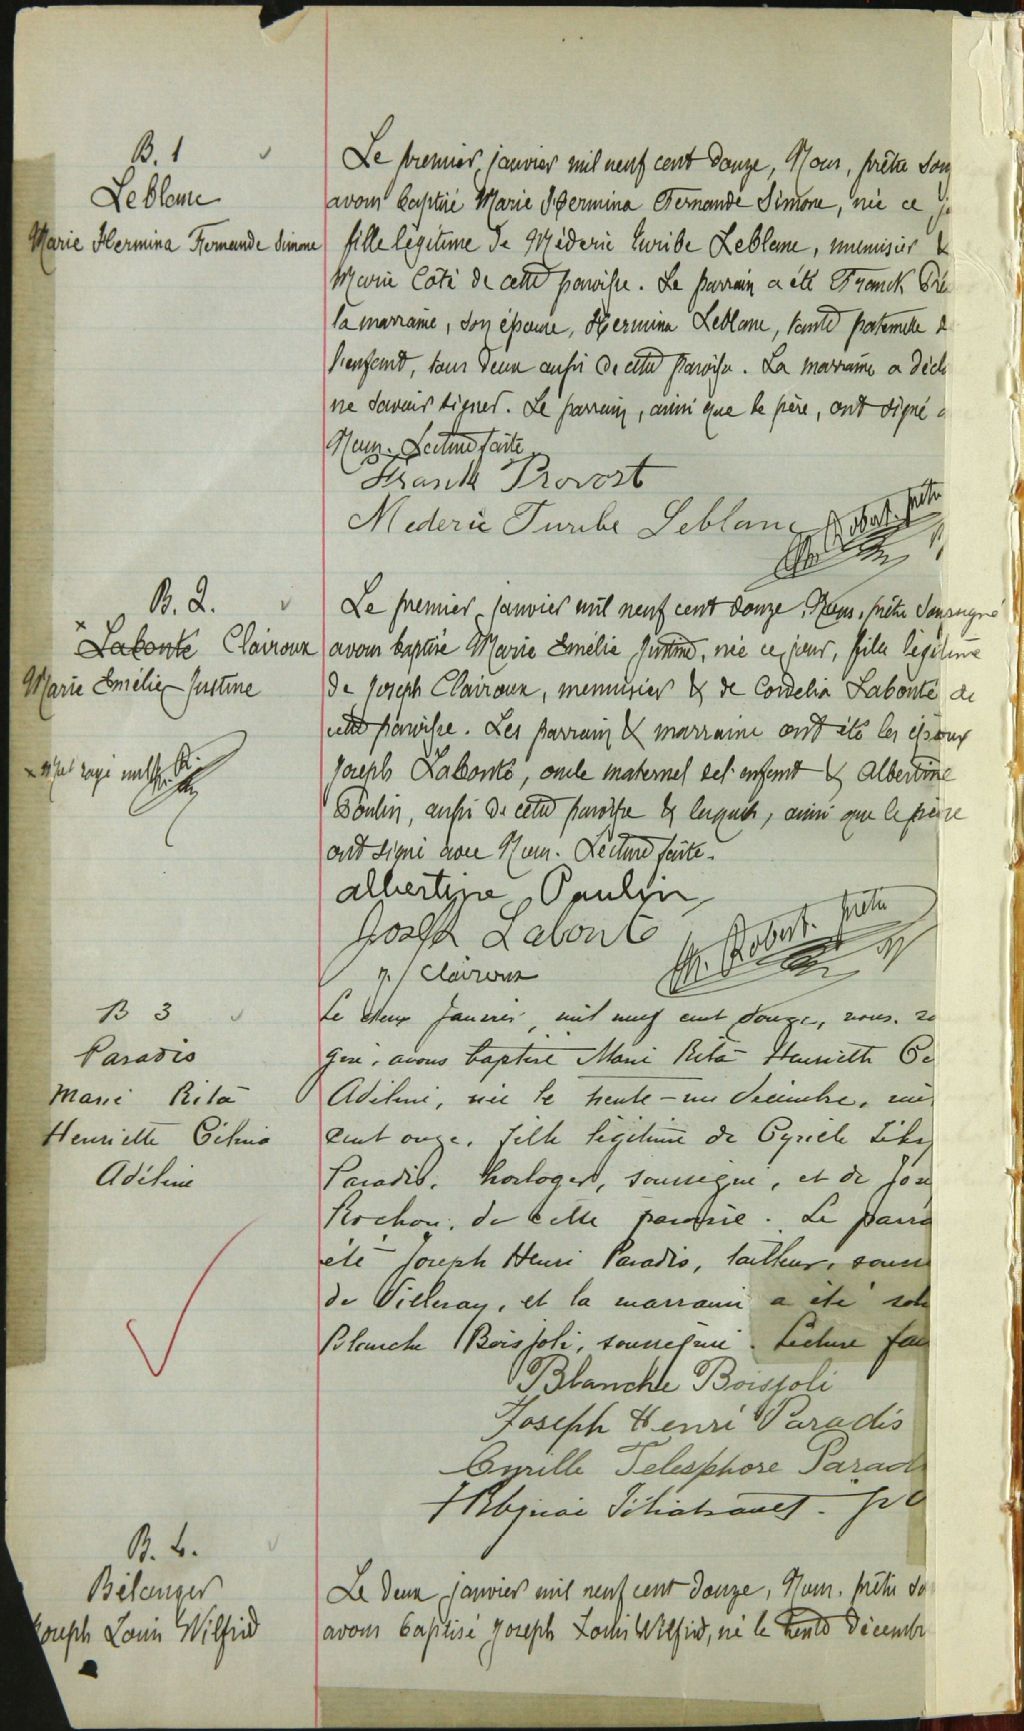 B. 1
Leblanc
Marie Hermina Fernande Simone
Le premier janvier mil neuf cent douze, Nous, prêtre sous
avons baptisé Marie Hermina Fernande Simone, née ce
fille légitime de Méderic Turibe Leblanc, menuisier &
Marie Coté de cette paroisse. Le parrain a été Franck
la marraine, son épouse, Hermina Leblanc, tante paternelle d
l'enfant, tous deux aussi de cette paroisse. La marraine a décla
ne savoir signer. Le parrain, ainsi que le père, ont signé a
Nous. Lecture faite.
Frank Provost
Mederic Turibe Leblanc
Robert. prêtre
B. 2.
x Labonté Clairoux
Marie Emélie Justine
x Mot rayé nul
Le premier janvier mil neuf cent douze, Nous, prêtre soussigné
avons baptisé Marie Emélie Justine, née ce jour, fille légitime
de Joseph Clairoux, menuisier & de Cordelia Labonté de
cette paroisse. Les parrain & marraine ont été les époux
Joseph Labonté, oncle maternel de l'enfant & Albertine
Poulin, aussi de cette paroisse & lesquels, ainsi que le père
ont signé avec Nous. Lecture faite.
Albertine Paulin
Joseph Labonté
J. Clairoux
Robert. prêtre
B 3
Paradis
Marie Rita
Henriette Célina
Adéline
Le deux Janvier, mil neuf cent douze, nous. so
gné, avons baptisé Marie Rita Henriette Cé
Adéline, née le trente-un décembre,
cent onze, fille légitime de Cyrille Téles
Paradis, horloger, soussigné, et de Jos
Rochon, de cette paroisse. Le parra
été Joseph Henri Paradis, tailleur, souss
de Villeray, et la marraine a été
Blanche Boisjoli, soussignée. Lecture fai
Blanche Boisjoli
Joseph Henri Paradis
Cyrille Telesphore Parad
B. 4.
Bélanger
Joseph Louis Wilfrid
Le deux janvier mil neuf cent douze, Nous, prêtre so
avons baptisé Joseph Louis Wilfrid, né le trente décembr